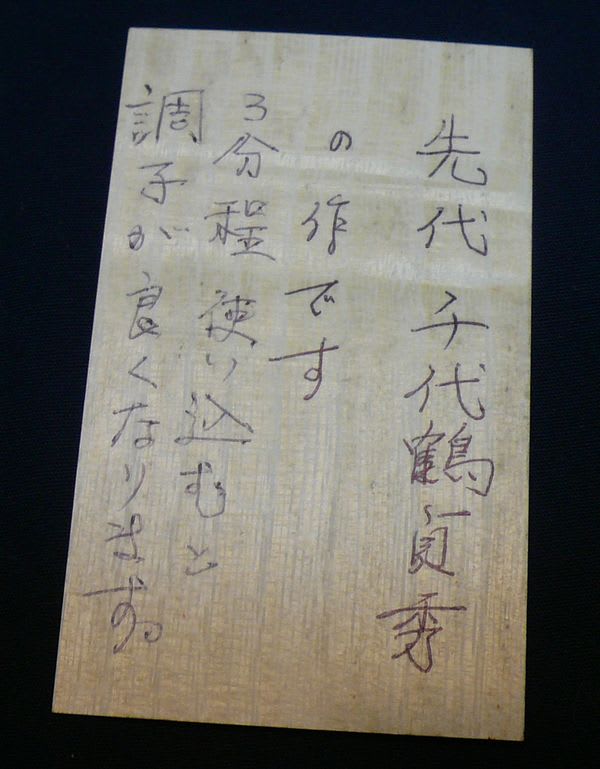 先代千代鶴貞秀
の作です
3分程使い込むと
調子が良くなります。